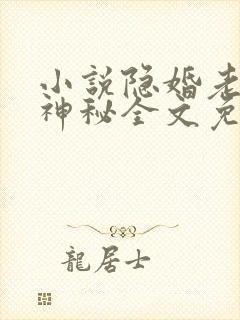 小说隐婚老
神秘全文免
龍居士